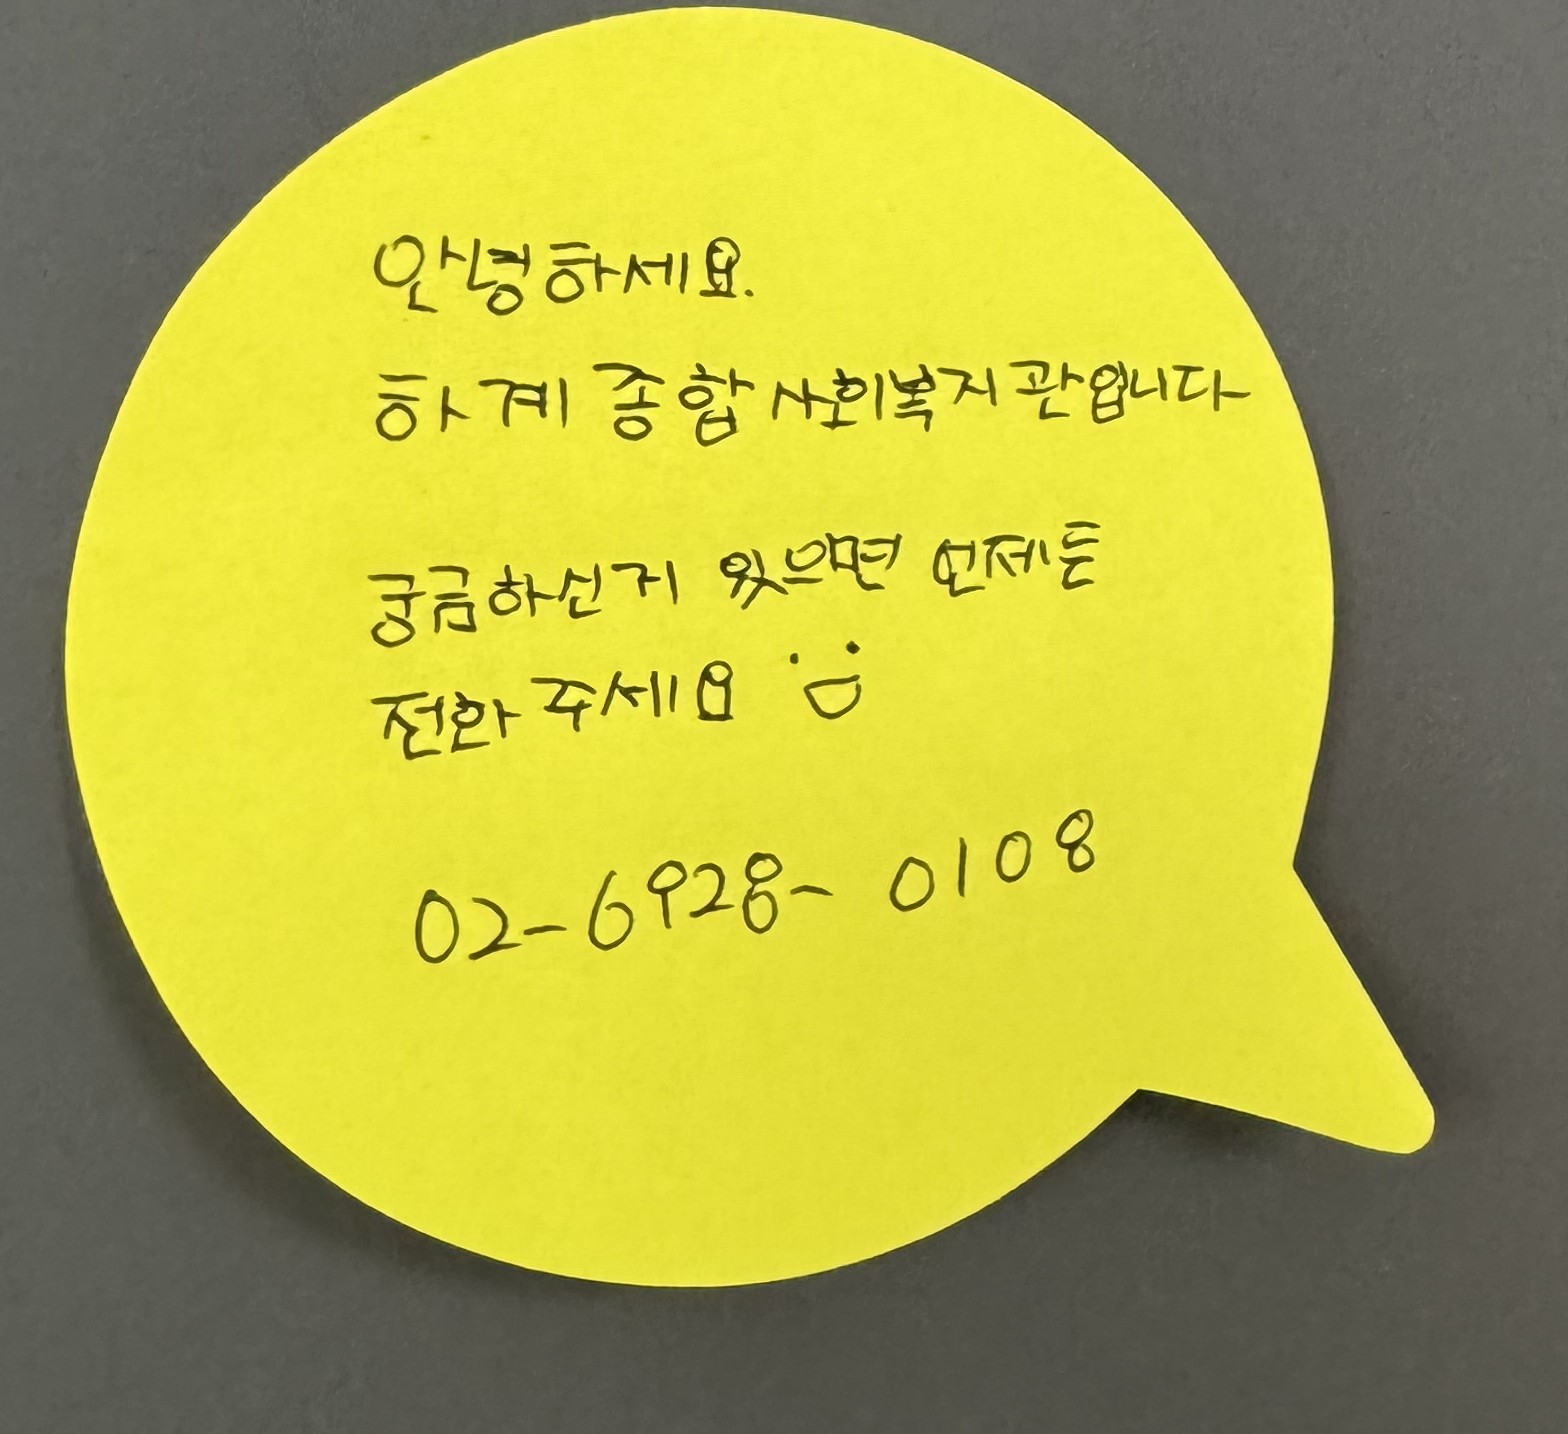 안녕하세요.
하계 종합 사회복지관입니다
궁금하신거 있으면 언제든
전화 주세요
02-6928-0108